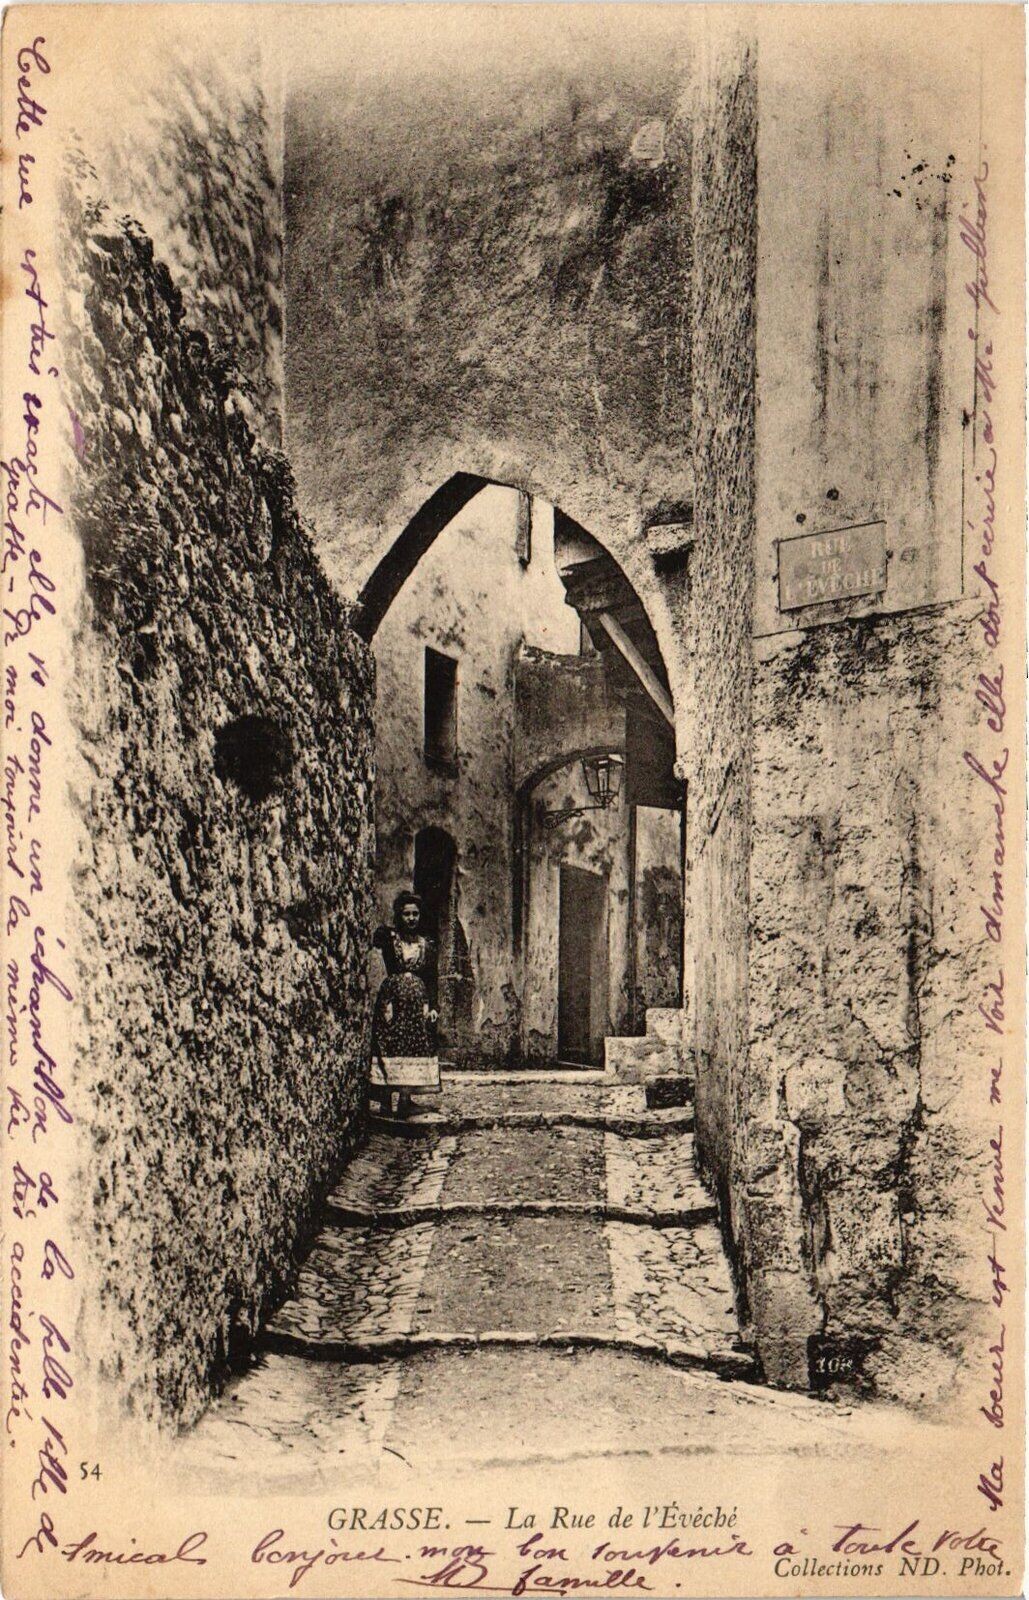 Cette rue est très exacte elle vs donne un échantillon de la belle ville de
Grasse - Pr moi toujours la même vie très accidentée.
RUE
DE
L'ÉVÊCHÉ
Ma soeur est venue me voir dimanche elle doit écrire à Mlle
108
54
GRASSE. — La Rue de l'Évêché
Amical bonjour. mon bon souvenir à toute votre
famille.
Collections ND. Phot.